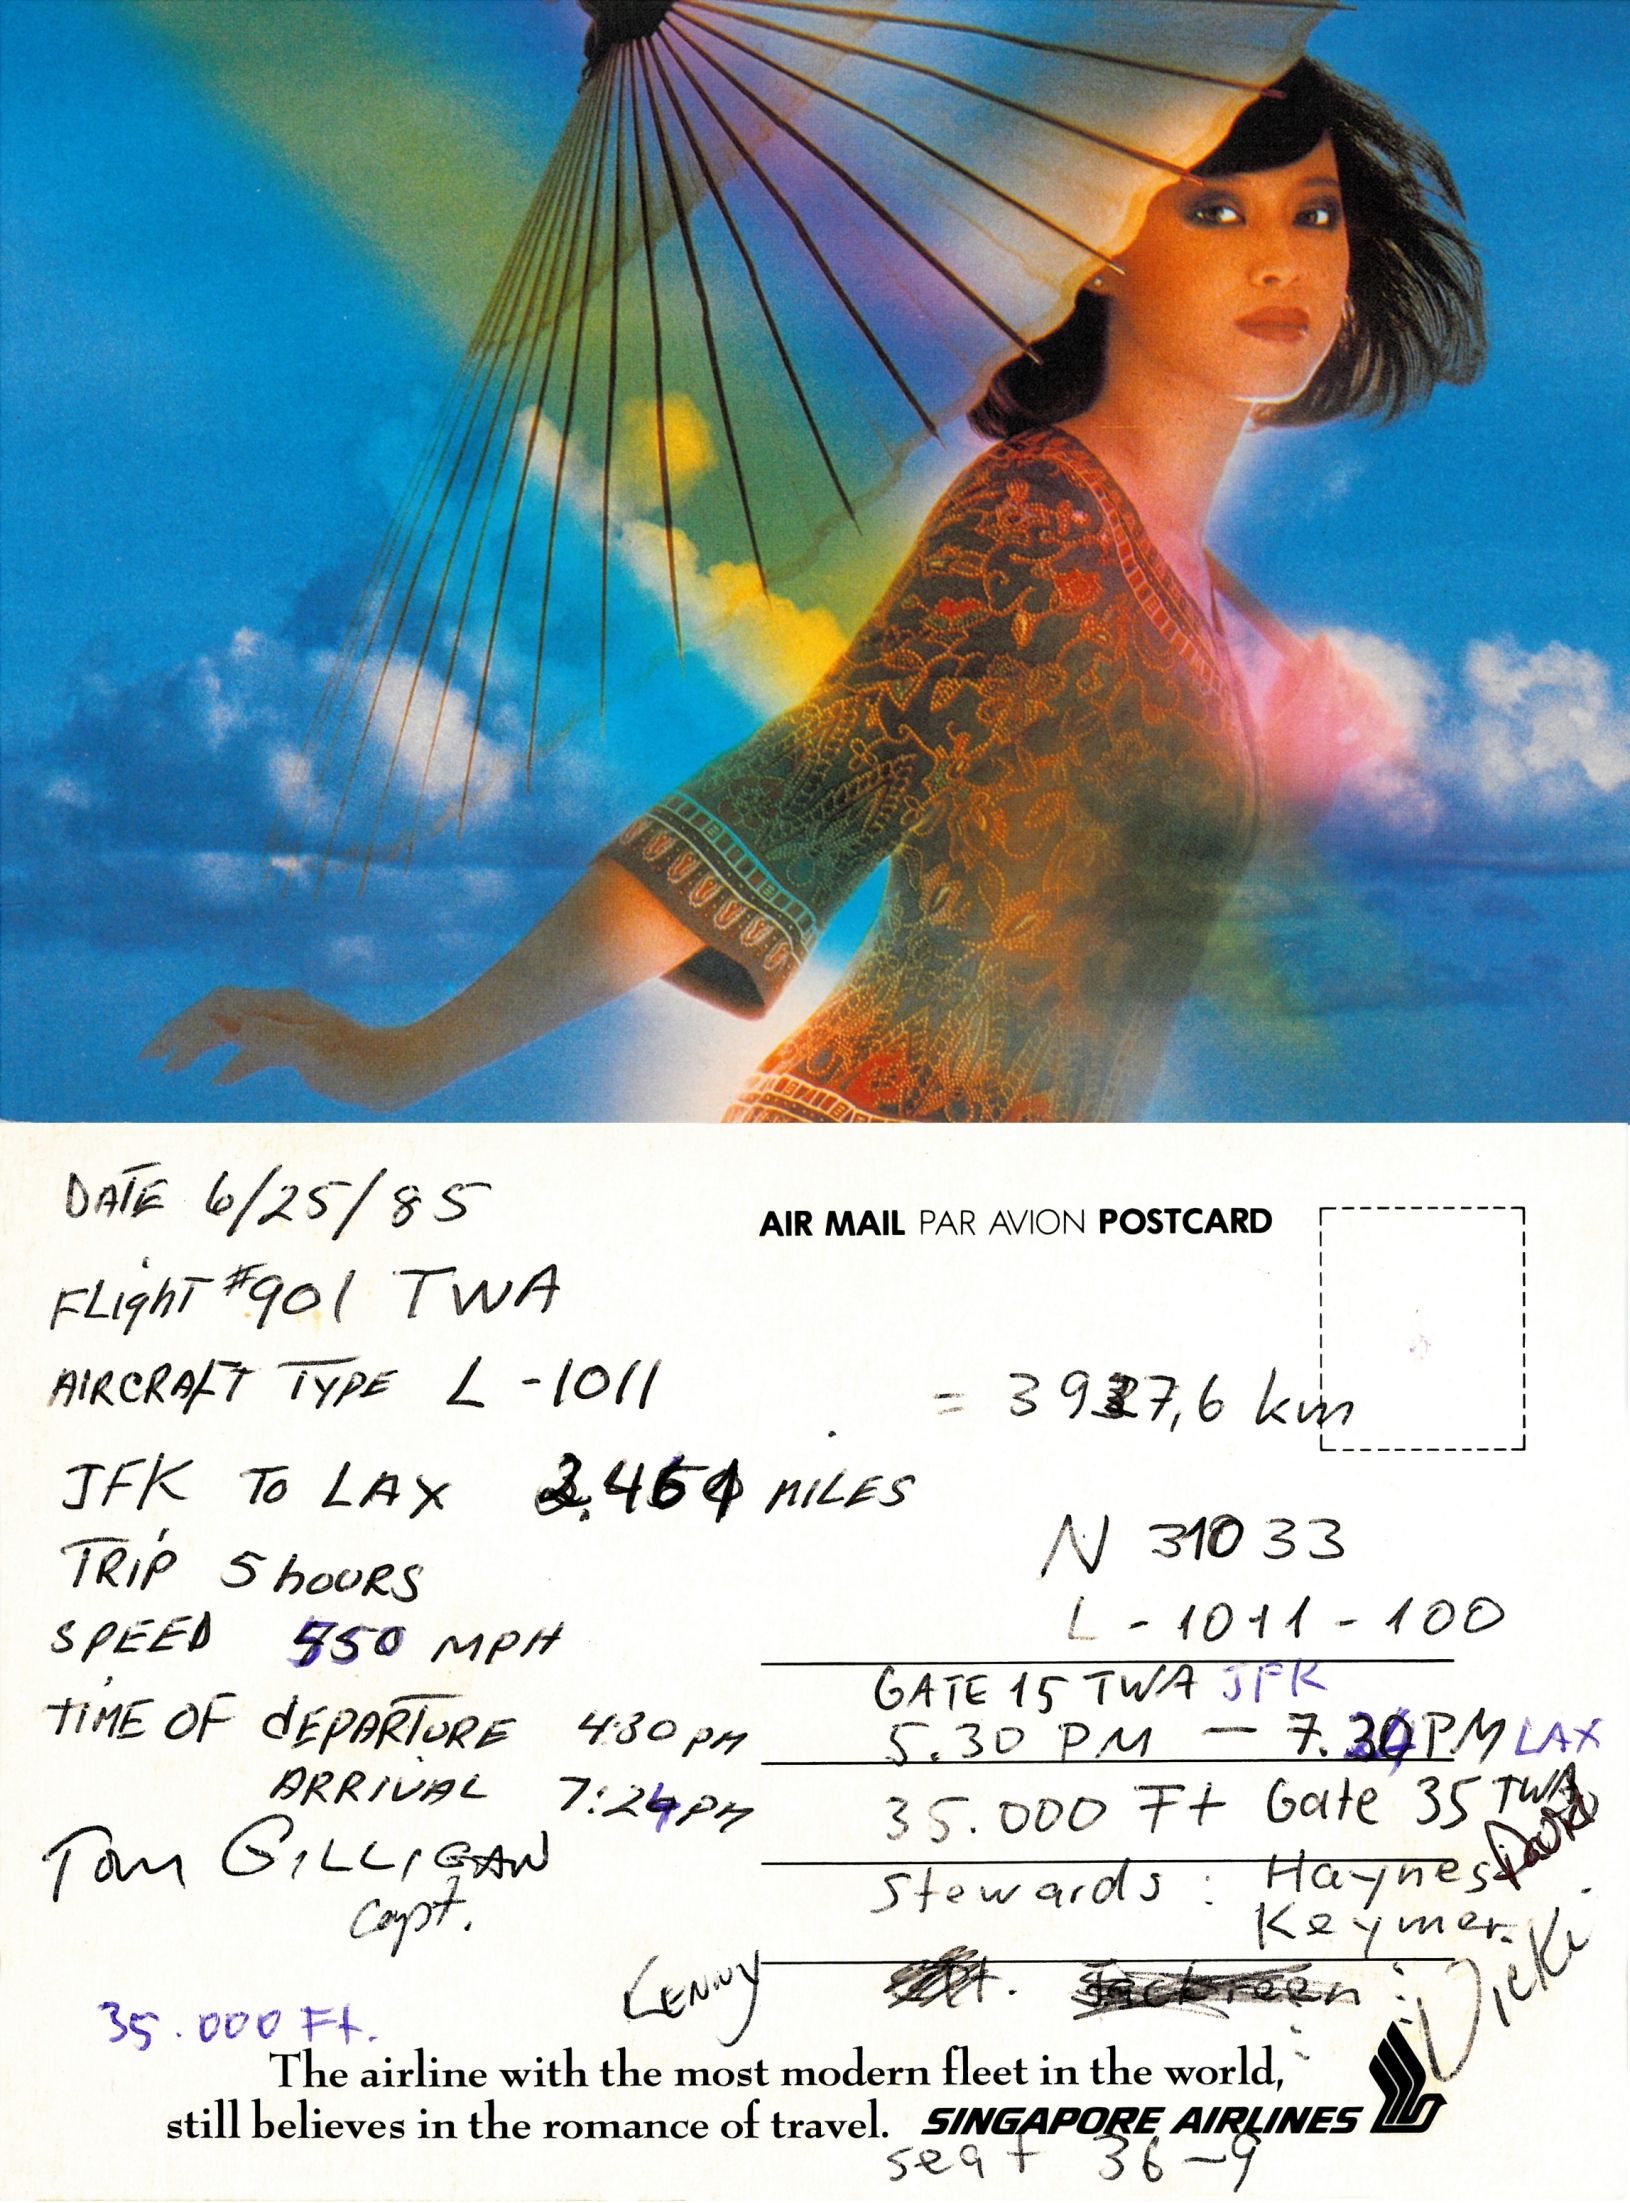 DATE 6/25/85
AIR MAIL PAR AVION POSTCARD
FLighT #901 TWA
AIRCRAFT TYPE L-1011
= 3937,6 km
JFK TO LAX 2.461 MILES
N 31033
TRIP 5 hOURS
L-1011-100
SPEED 550 MPH
GATE 15 TWA JFK
TIME OF dEPARTURE 430 PM
5.30 PM — 7.24 PM LAX
ARRIVAL 7:24 PM
35.000 Ft Gate 35 TWA
Tom GILLIGAN
capt.
Stewards: Haynes David
Keymer.
Vicki
LENNY
35.000 Ft.
The airline with the most modern fleet in the world,
still believes in the romance of travel. SINGAPORE AIRLINES
seat 36-9